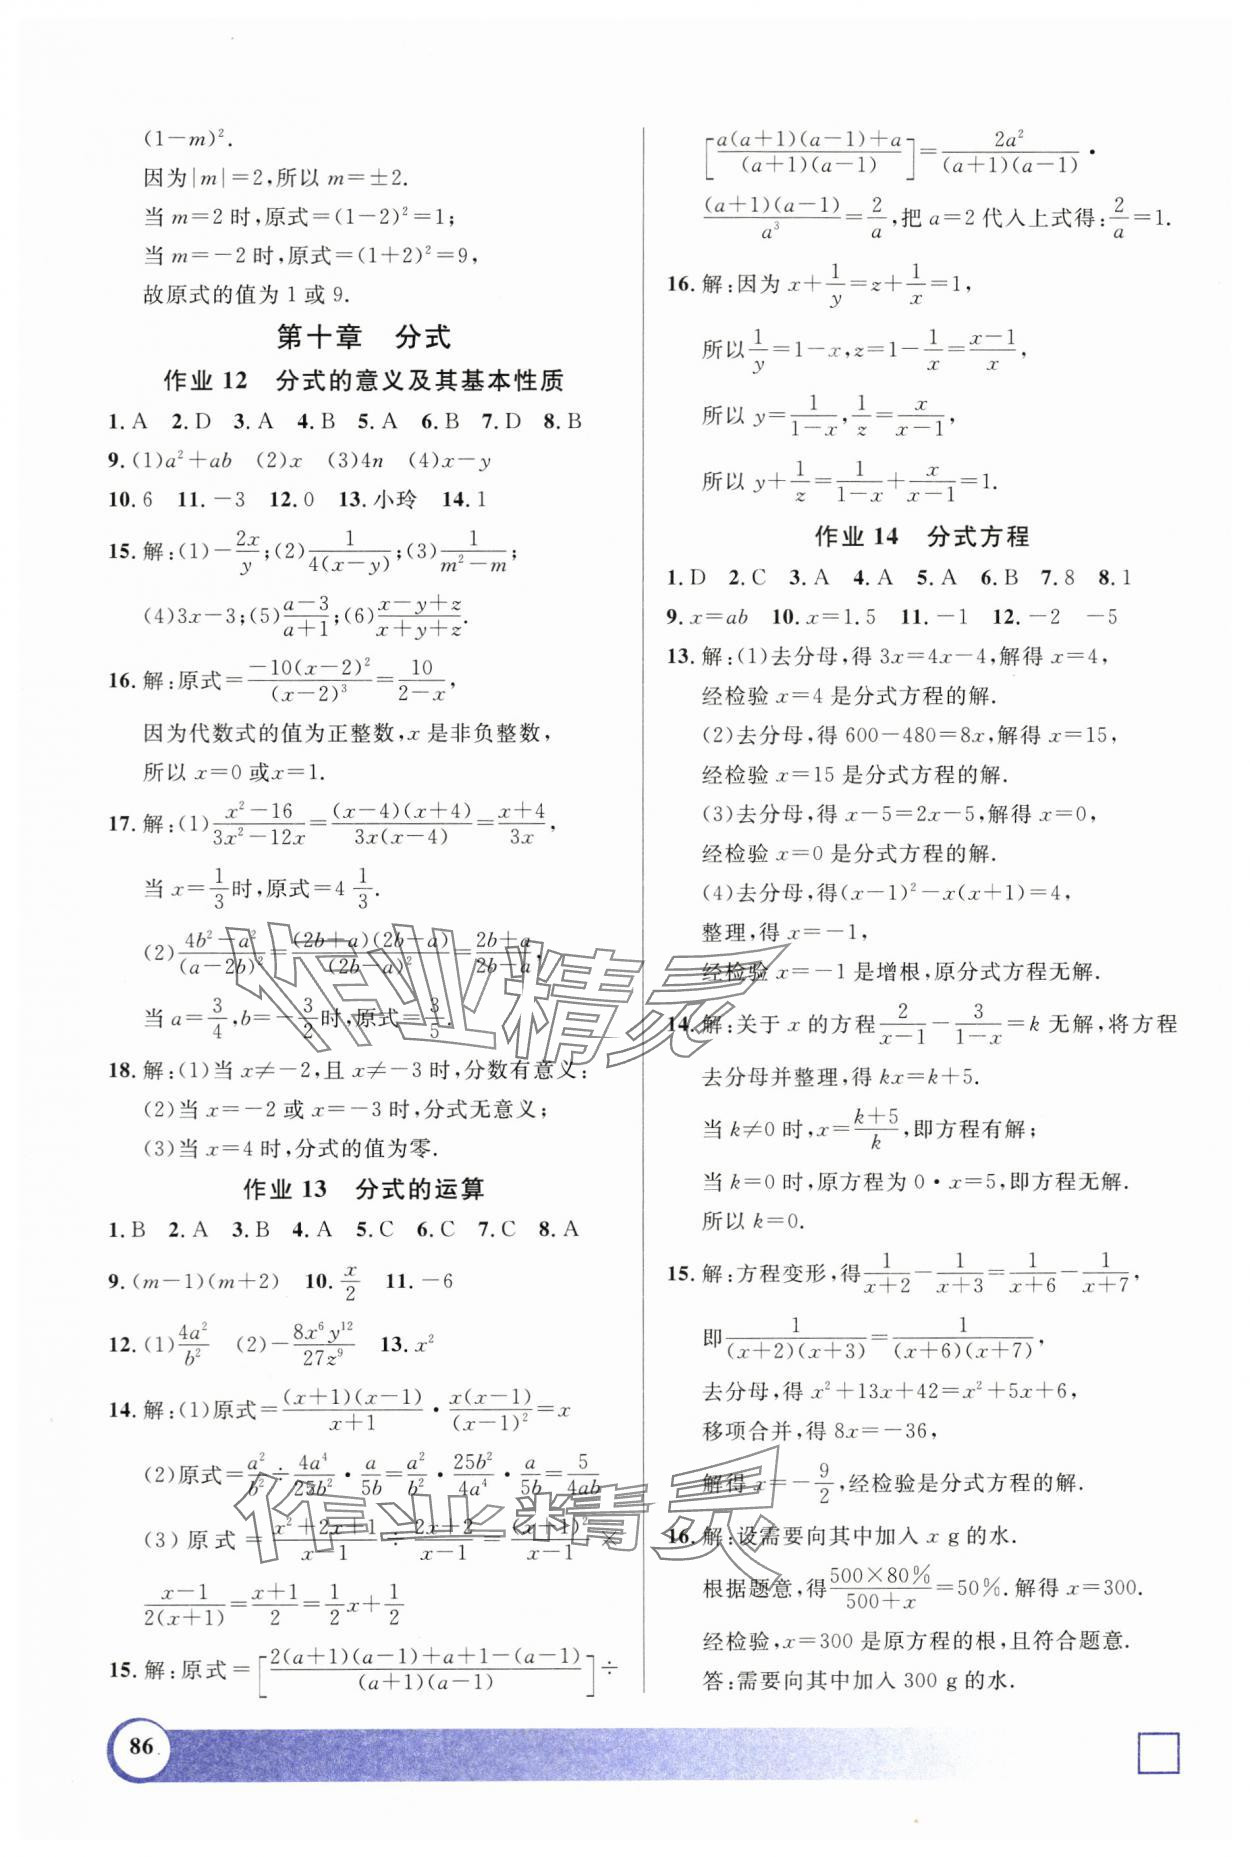 (1－m)².
因为|m|=2,所以 m=±2.
当 m=2 时,原式=(1－2)²=1;
当 m=－2 时,原式=(1+2)²=9,
故原式的值为 1 或 9.
第十章 分式
作业 12 分式的意义及其基本性质
1. A 2. D 3. A 4. B 5. A 6. B 7. D 8. B
9. (1)a²+ab (2)x (3)4n (4)x－y
10. 6 11. －3 12. 0 13. 小玲 14. 1
15. 解:(1)－2x/y;(2)1/(4(x－y));(3)1/(m²－m);
(4)3x－3;(5)(a－3)/(a+1);(6)(x－y+z)/(x+y+z).
16. 解:原式=－10(x－2)²/(x－2)³=10/(2－x),
因为代数式的值为正整数,x 是非负整数,
所以 x=0 或x=1.
17. 解:(1)(x²－16)/(3x²－12x)=(x－4)(x+4)/(3x(x－4))=(x+4)/(3x),
当 x=1/3时,原式=4 1/3.
(2)(4b²－a²)/(a－2b)²=(2b+a)(2b－a)/(2b－a)²=(2b+a)/(2b－a),
当 a=3/4,b=－3/2时,原式=3/5.
18. 解:(1)当 x≠－2,且 x≠－3 时,分数有意义:
(2)当 x=－2 或 x=－3 时,分式无意义;
(3)当 x=4 时,分式的值为零.
作业 13 分式的运算
1. B 2. A 3. B 4. A 5. C 6. C 7. C 8. A
9. (m－1)(m+2) 10. x/2 11. －6
12. (1)4a²/b² (2)－8x⁶y¹²/27z⁹ 13. x²
14. 解:(1)原式=(x+1)(x－1)/(x+1)·x(x－1)/(x－1)²=x
(2)原式=a²/b²÷4a⁴/25b²·a/5b=a²/b²·25b²/4a⁴·a/5b=5/4ab
(3)原式=(x²+2x+1)/(x－1)÷(2x+2)/(x－1)=(x+1)²/(x－1)×
(x－1)/(2(x+1))=(x+1)/2=1/2x+1/2
15. 解:原式=[(2(a+1)(a－1)+a+1－(a－1))/((a+1)(a－1))]÷
[(a(a+1)(a－1)+a)/((a+1)(a－1))]=2a²/((a+1)(a－1))·
(a+1)(a－1)/a³=2/a,把 a=2 代入上式得:2/a=1.
16. 解:因为 x+1/y=z+1/x=1,
所以1/y=1－x,z=1－1/x=(x－1)/x,
所以 y=1/(1－x),1/z=x/(x－1),
所以 y+1/z=1/(1－x)+x/(x－1)=1.
作业 14 分式方程
1. D 2. C 3. A 4. A 5. A 6. B 7. 8 8. 1
9. x=ab 10. x=1.5 11. －1 12. －2 －5
13. 解:(1)去分母,得 3x=4x－4,解得 x=4,
经检验 x=4 是分式方程的解.
(2)去分母,得 600－480=8x,解得 x=15,
经检验 x=15 是分式方程的解.
(3)去分母,得 x－5=2x－5,解得 x=0,
经检验 x=0 是分式方程的解.
(4)去分母,得(x－1)²－x(x+1)=4,
整理,得 x=－1,
经检验 x=－1 是增根,原分式方程无解.
14. 解:关于 x 的方程2/(x－1)－3/(1－x)=k 无解,将方程
去分母并整理,得 kx=k+5.
当 k≠0 时,x=(k+5)/k,即方程有解;
当 k=0 时,原方程为 0·x=5,即方程无解.
所以 k=0.
15. 解:方程变形,得1/(x+2)－1/(x+3)=1/(x+6)－1/(x+7),
即1/((x+2)(x+3))=1/((x+6)(x+7)),
去分母,得 x²+13x+42=x²+5x+6,
移项合并,得 8x=－36,
解得 x=－9/2,经检验是分式方程的解.
16. 解:设需要向其中加入 x g 的水.
根据题意,得(500×80%)/(500+x)=50%. 解得 x=300.
经检验,x=300 是原方程的根,且符合题意.
答:需要向其中加入 300 g 的水.
86
作业精灵
作业精灵